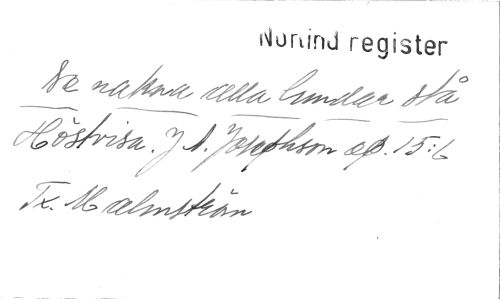 Norlind register
Se nakna alla lundar stå
Höstvisa. J A. Josephson op. 15:6
Tx. Malmström